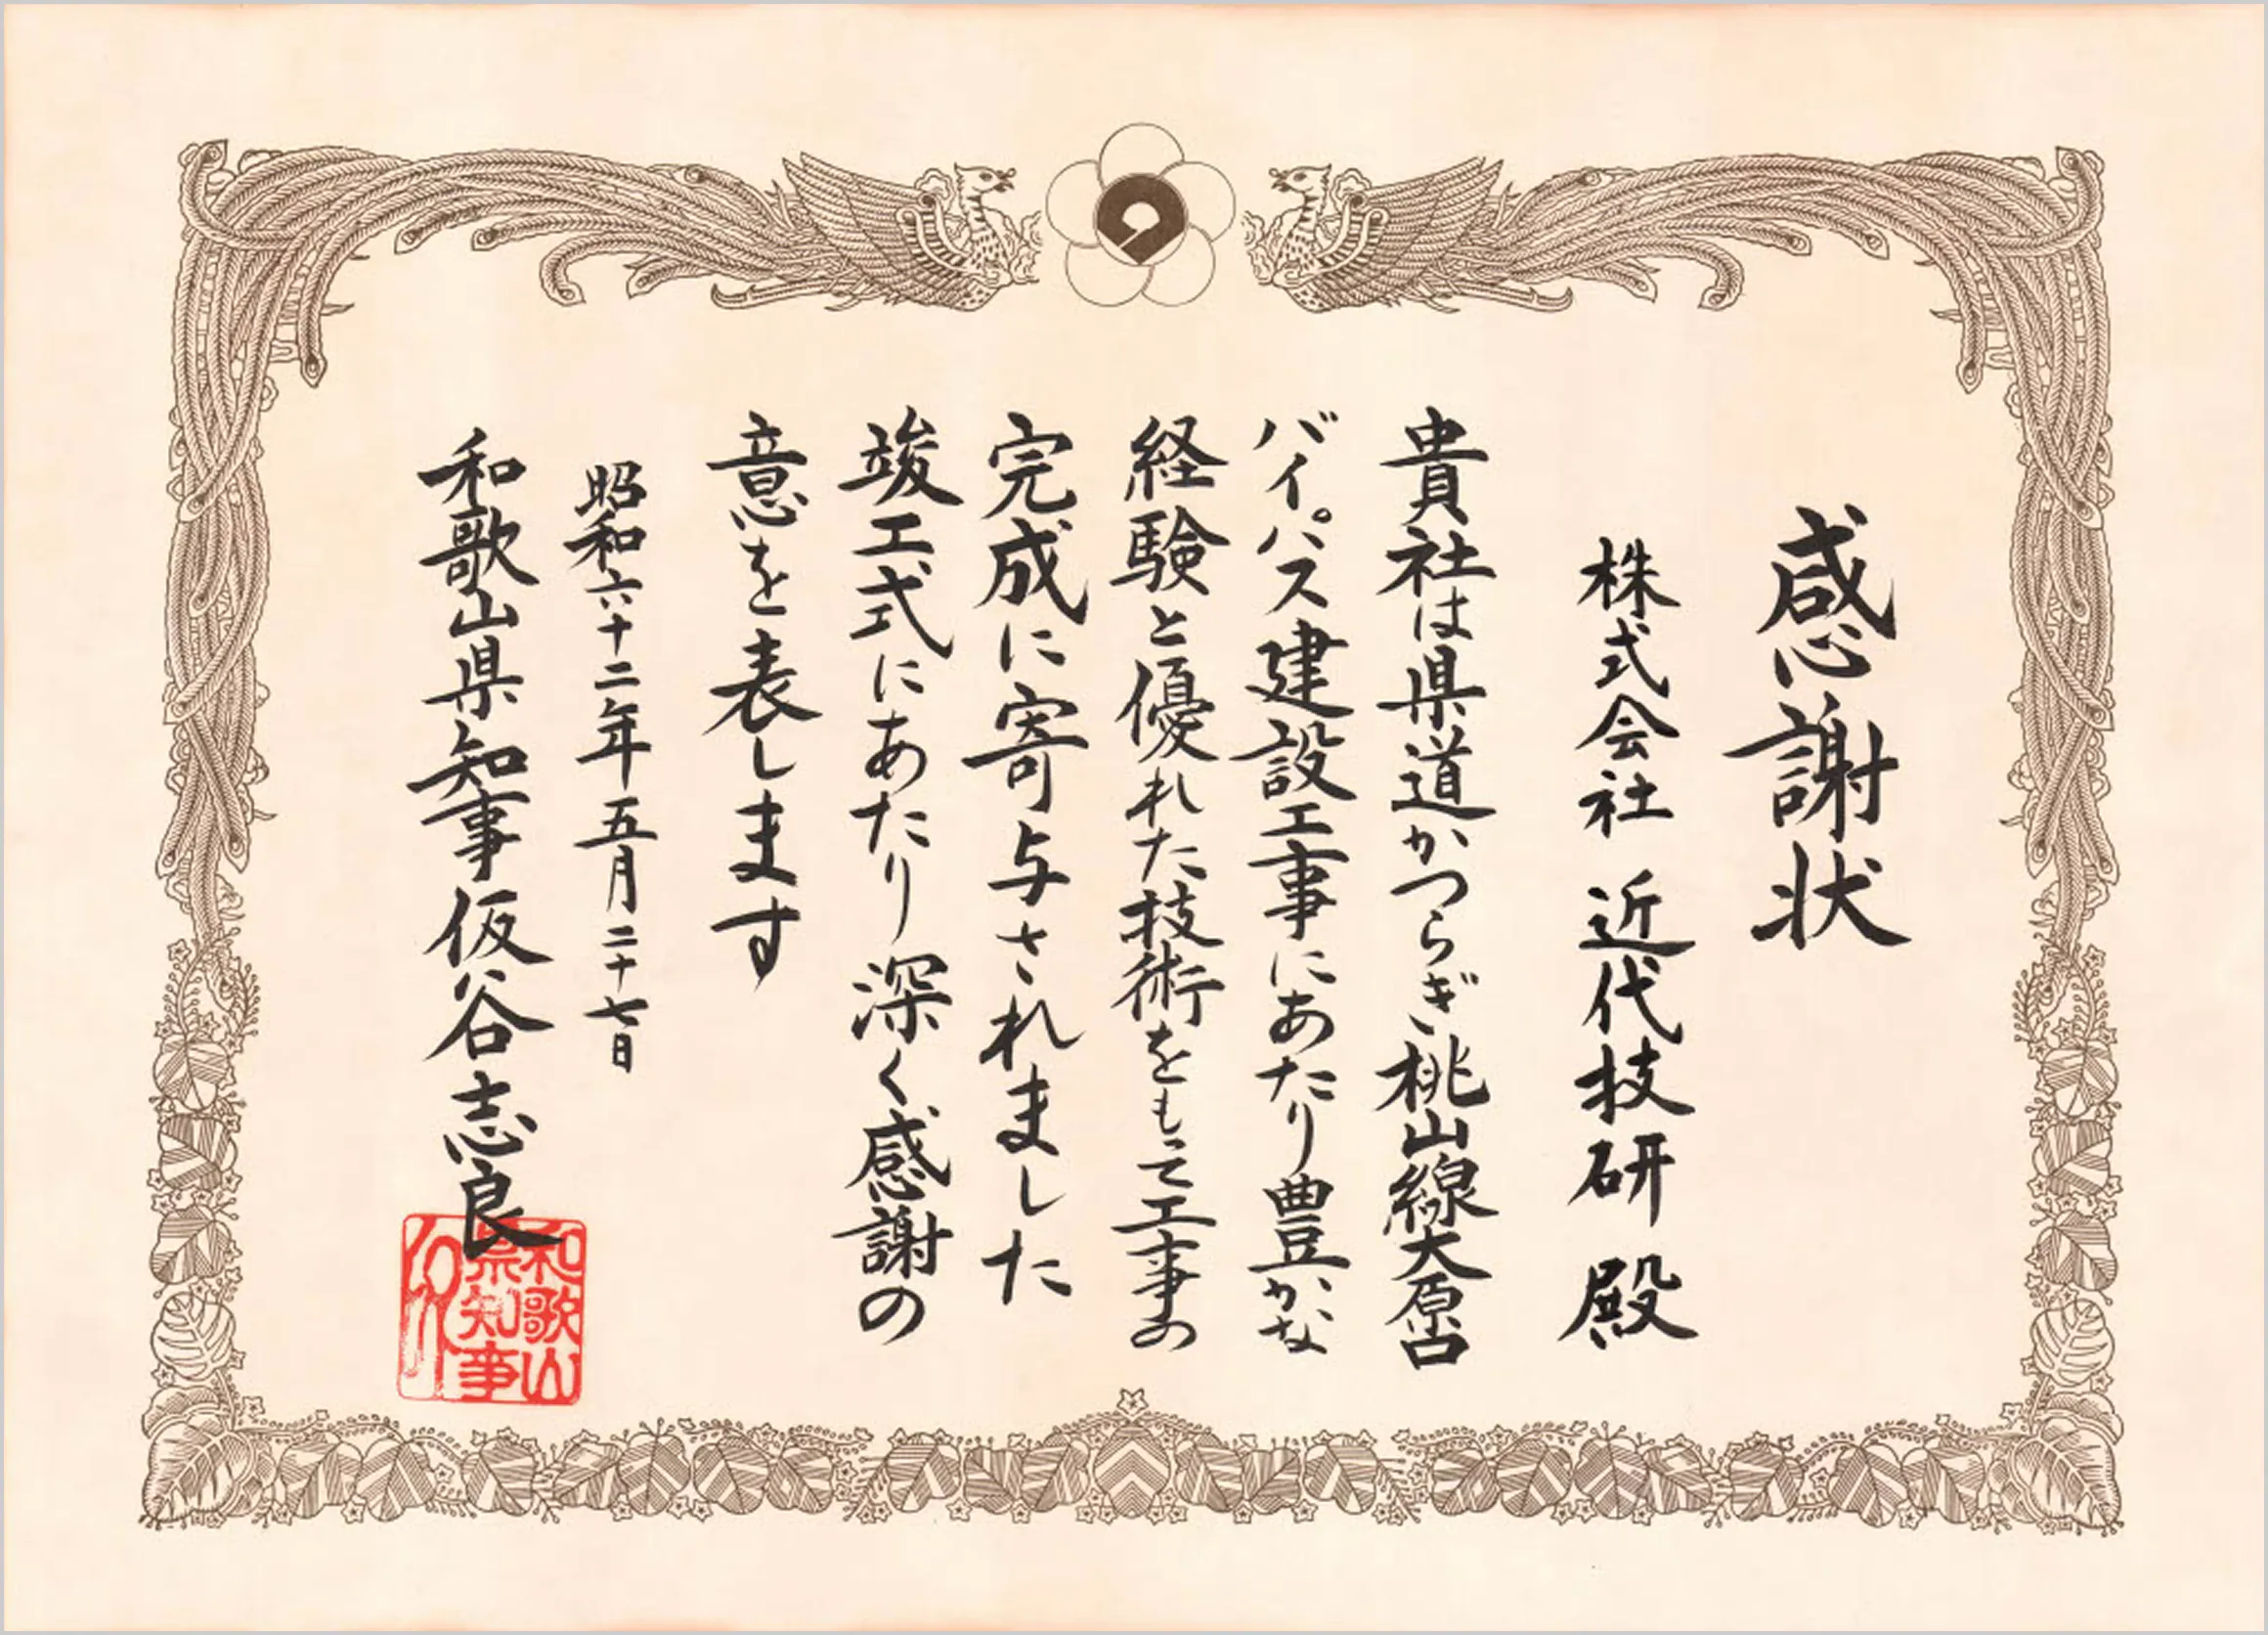 感謝状
株式会社 近代技研 殿
貴社は県道かつらぎ桃山線大原口
バイパス建設工事にあたり豊かな
経験と優れた技術をもって工事の
完成に寄与されました
竣工式にあたり深く感謝の
意を表します
昭和六十二年五月二十七日
和歌山県知事仮谷志良
和歌山
県知事
印